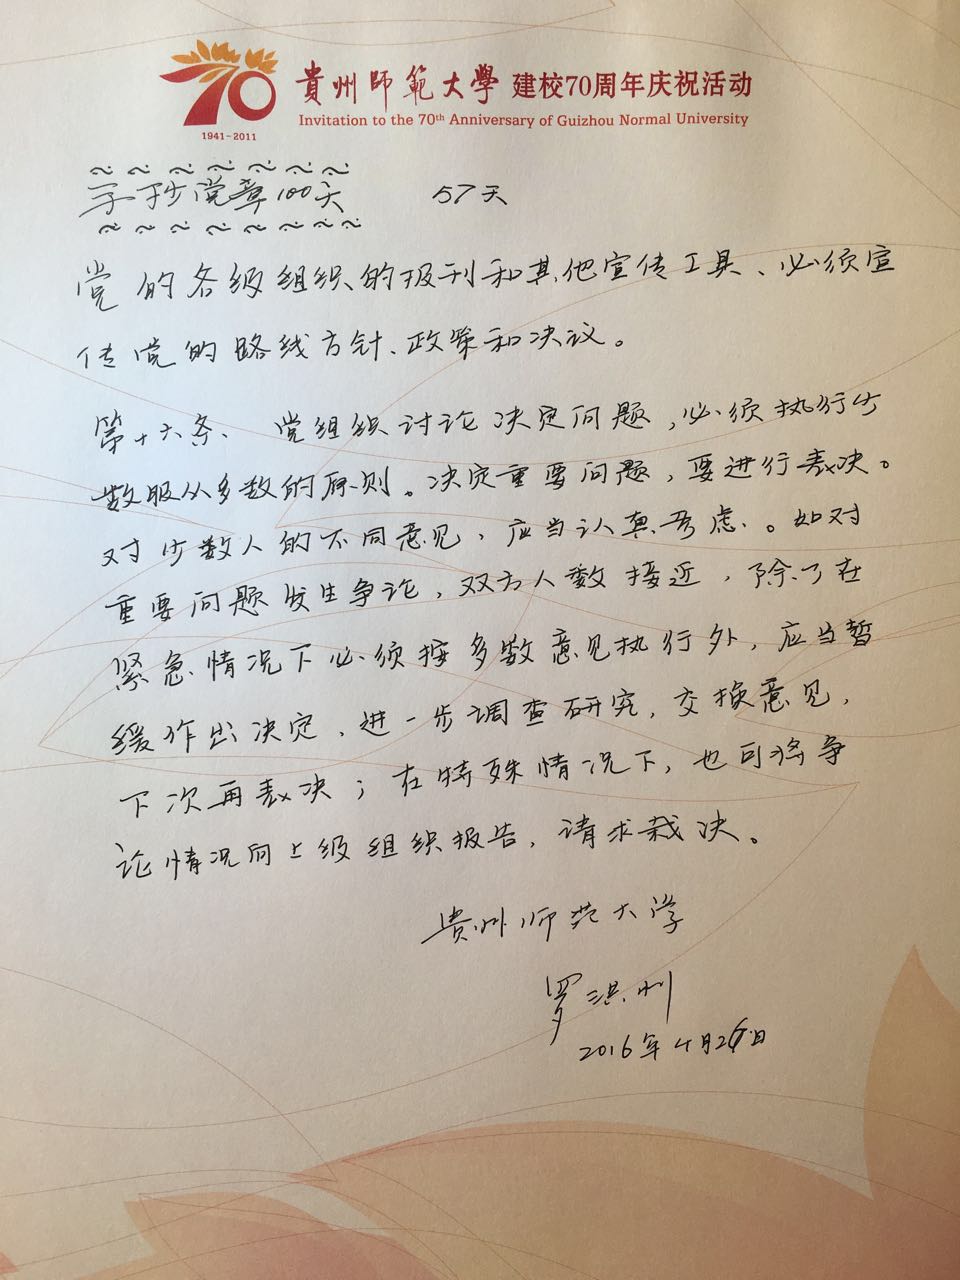 70
1941-2011
貴州師範大學 建校70周年庆祝活动
Invitation to the 70th Anniversary of Guizhou Normal University
手抄党章100天 57天
党的各级组织的报刊和其他宣传工具、必须宣
传党的路线方针、政策和决议。
第十六条、党组织讨论决定问题,必须执行少
数服从多数的原则。决定重要问题,要进行表决。
对少数人的不同意见,应当认真考虑.。如对
重要问题发生争论,双方人数接近,除了在
紧急情况下必须按多数意见执行外,应当暂
缓作出决定,进一步调查研究,交换意见,
下次再表决;在特殊情况下,也可将争
论情况向上级组织报告,请求裁决。
贵州师范大学
罗洪州
2016年4月26日